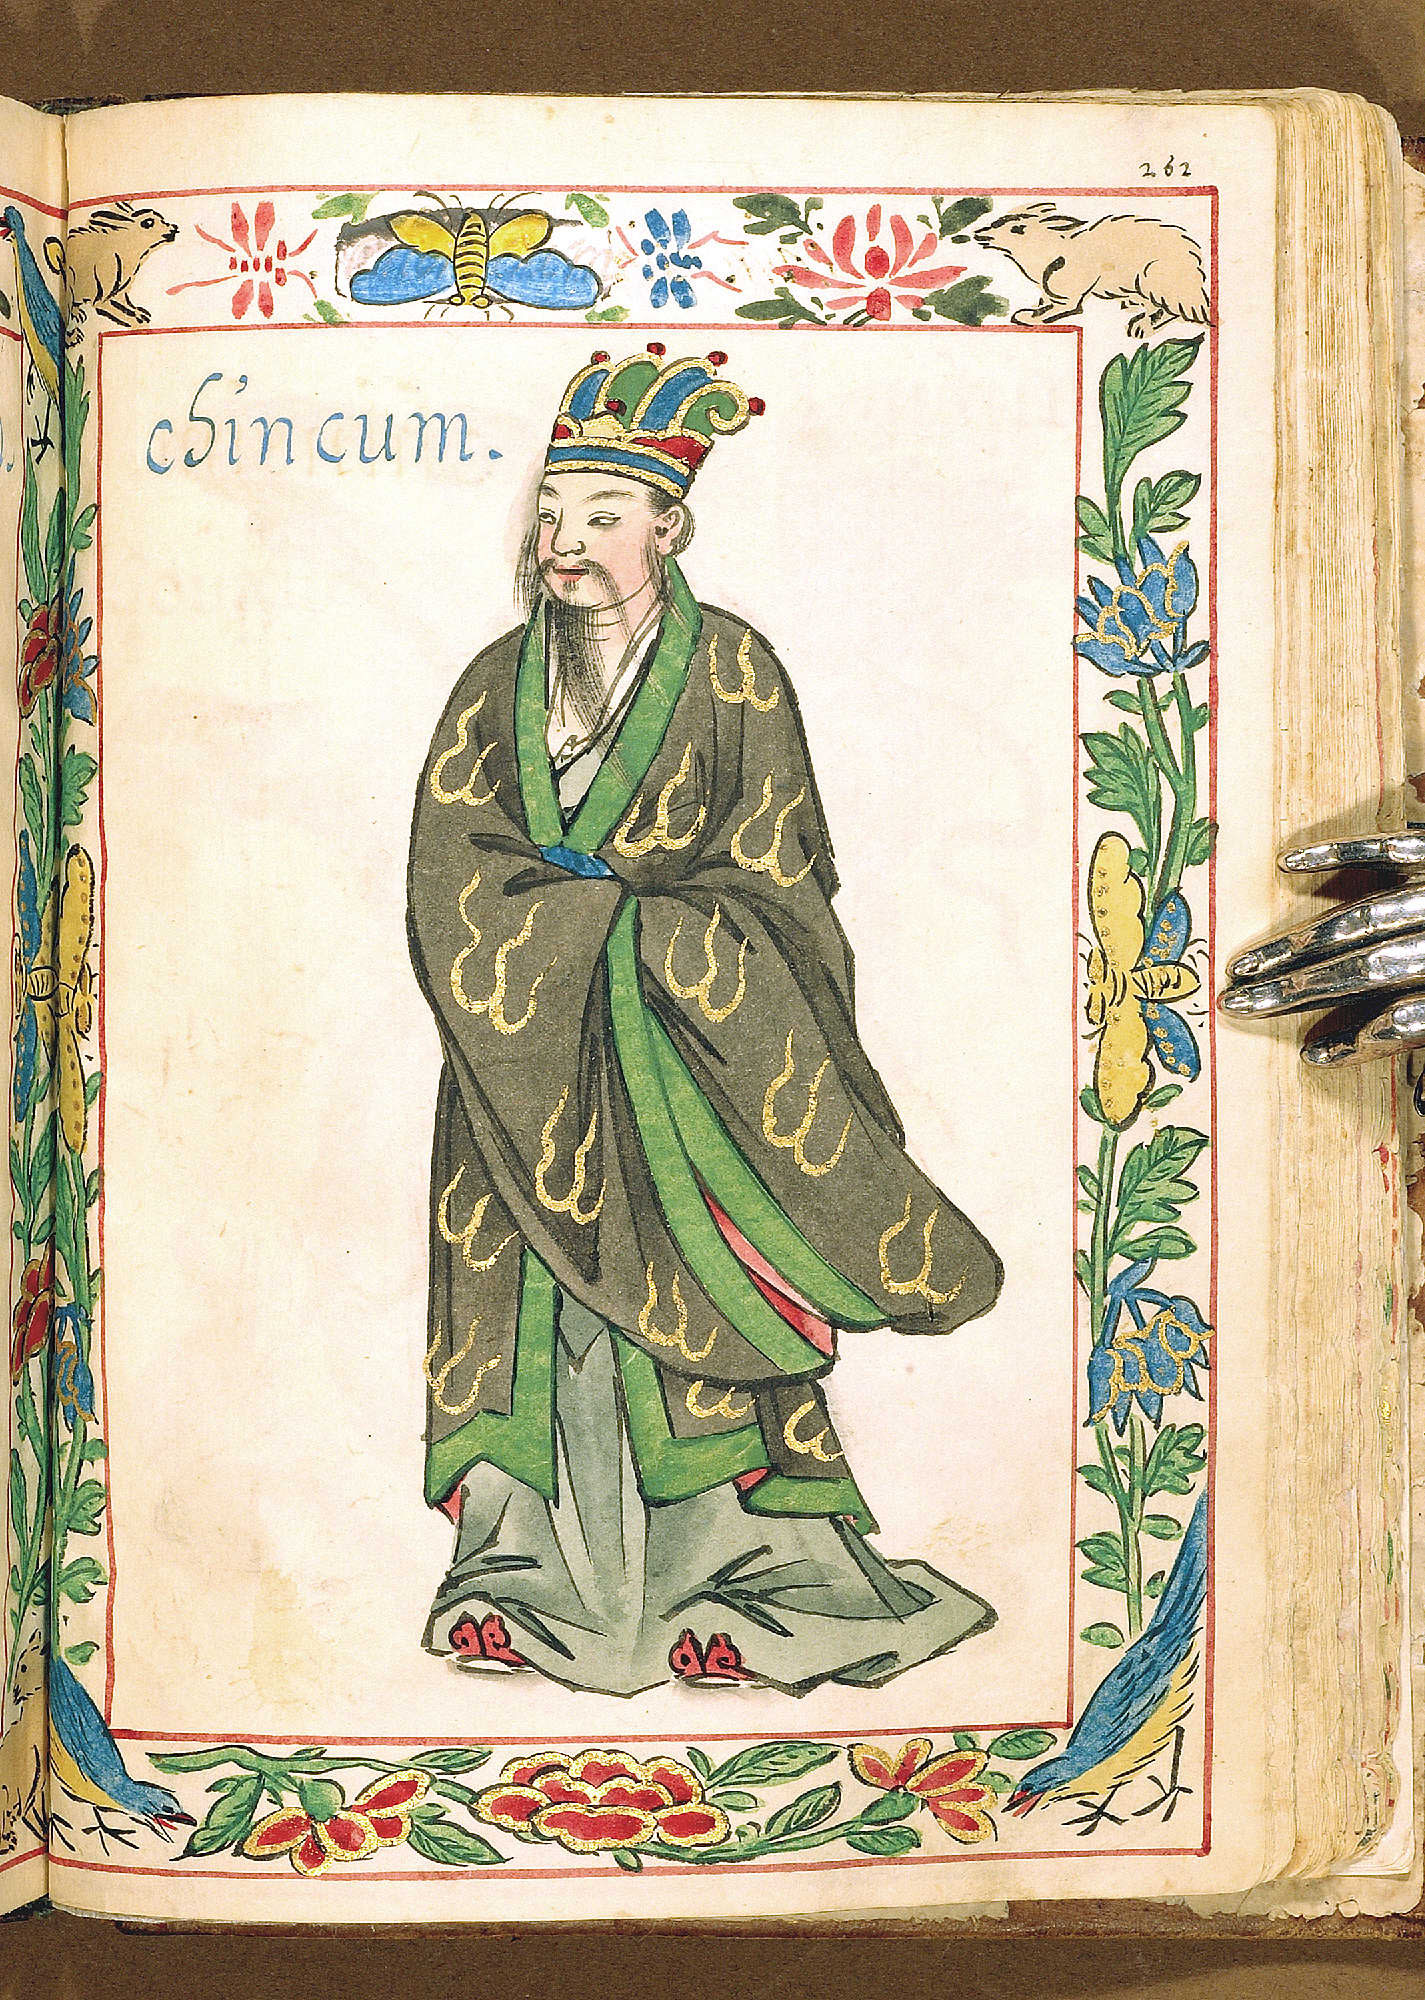 262
chin cum.